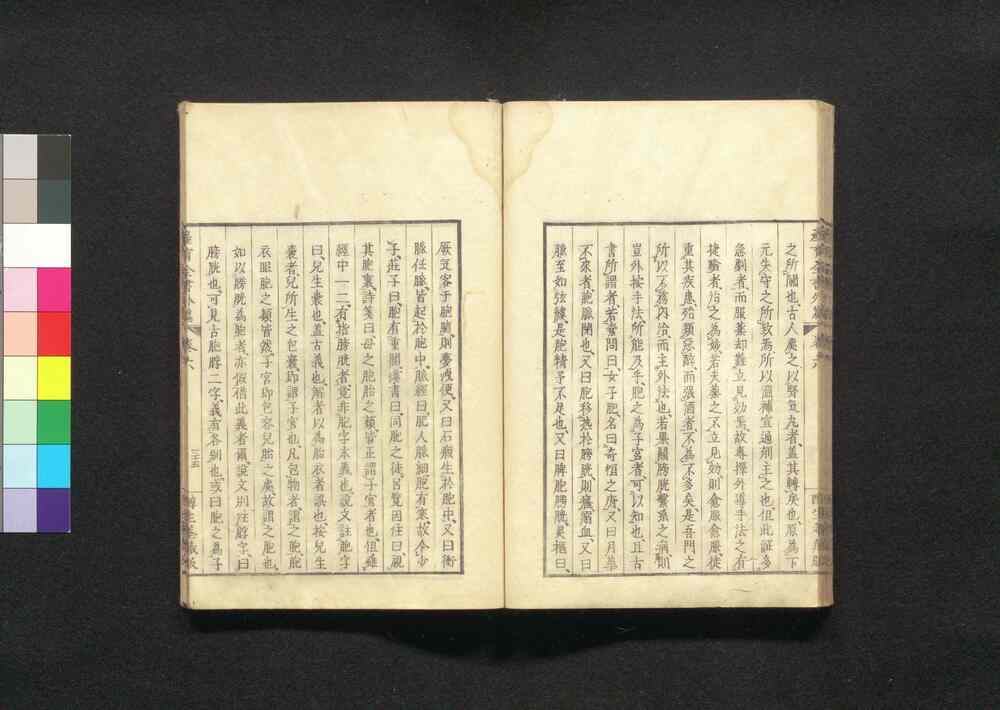 之所關也、古人處之以腎氣丸者、蓋其轉矣也、原爲下
元失守之所致、焉所以溫補宣通劑主之也、但此證多
急劇者、而服藥却難立見効驗、故專擇外導手法之有
捷驗者、治之爲妙、若夫藥之不立見効、則愈服愈厭、徒
重其疾患、殆類惡醉而强酒者、不爲不多矣、是吾門之
所以不務內治而主外法也、若果關膀胱繫系之病、則
豈外按手法所能及乎、胞之爲子宮者、可以知也、且古
書所謂者、若素問曰、女子胞名曰奇恒之府、又曰月事
不來者、胞脈閉也、又曰胞移熱於膀胱、則癃溺血、又曰
脈至如弦縷、是胞精予不足也、又曰脾胞膀胱、靈樞曰、
厥氣客于胞䐈、則夢溲便、又曰石瘕生於胞中、又曰衝
脈任脈皆起於胞中、脈經曰、肥人脈細、胞有寒、故令少
子、莊子曰、胞有重閬、漢書曰、同胞之徒、呂覽因任曰、視
其胞裏、詩箋曰、母之胞胎之類、皆正謂子宮者也、但雖
經中一二有指膀胱者、寛非胞字本義也、說文註胞字
曰、兒生裹也、蓋古義也、解者以爲胎衣者誤也、按兒生
裹者、兒所生之包裹、卽謂子宮也、凡包物者謂之胞、胞
衣眼胞之類皆然、子宮卽包容兒胎之處、故謂之胞也、
如以膀胱爲胞者、亦假借此義者爾、說文別註脬字、曰
膀胱也、可見古胞脬二字、義有各別也、或曰胞之爲子
產育全書外篇 卷六
二十五